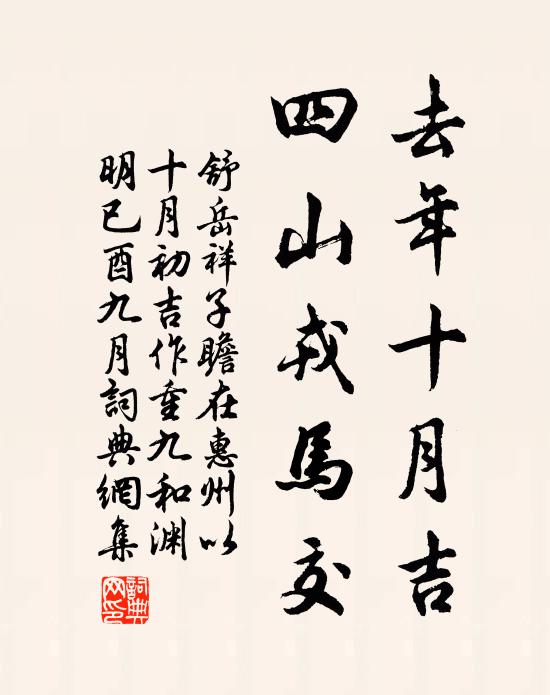 去年十月吉
四山戎馬交
舒岳祥子瞻在惠州以
十月初吉作重九和渊
明已酉九月詞典網集
詞典
网印